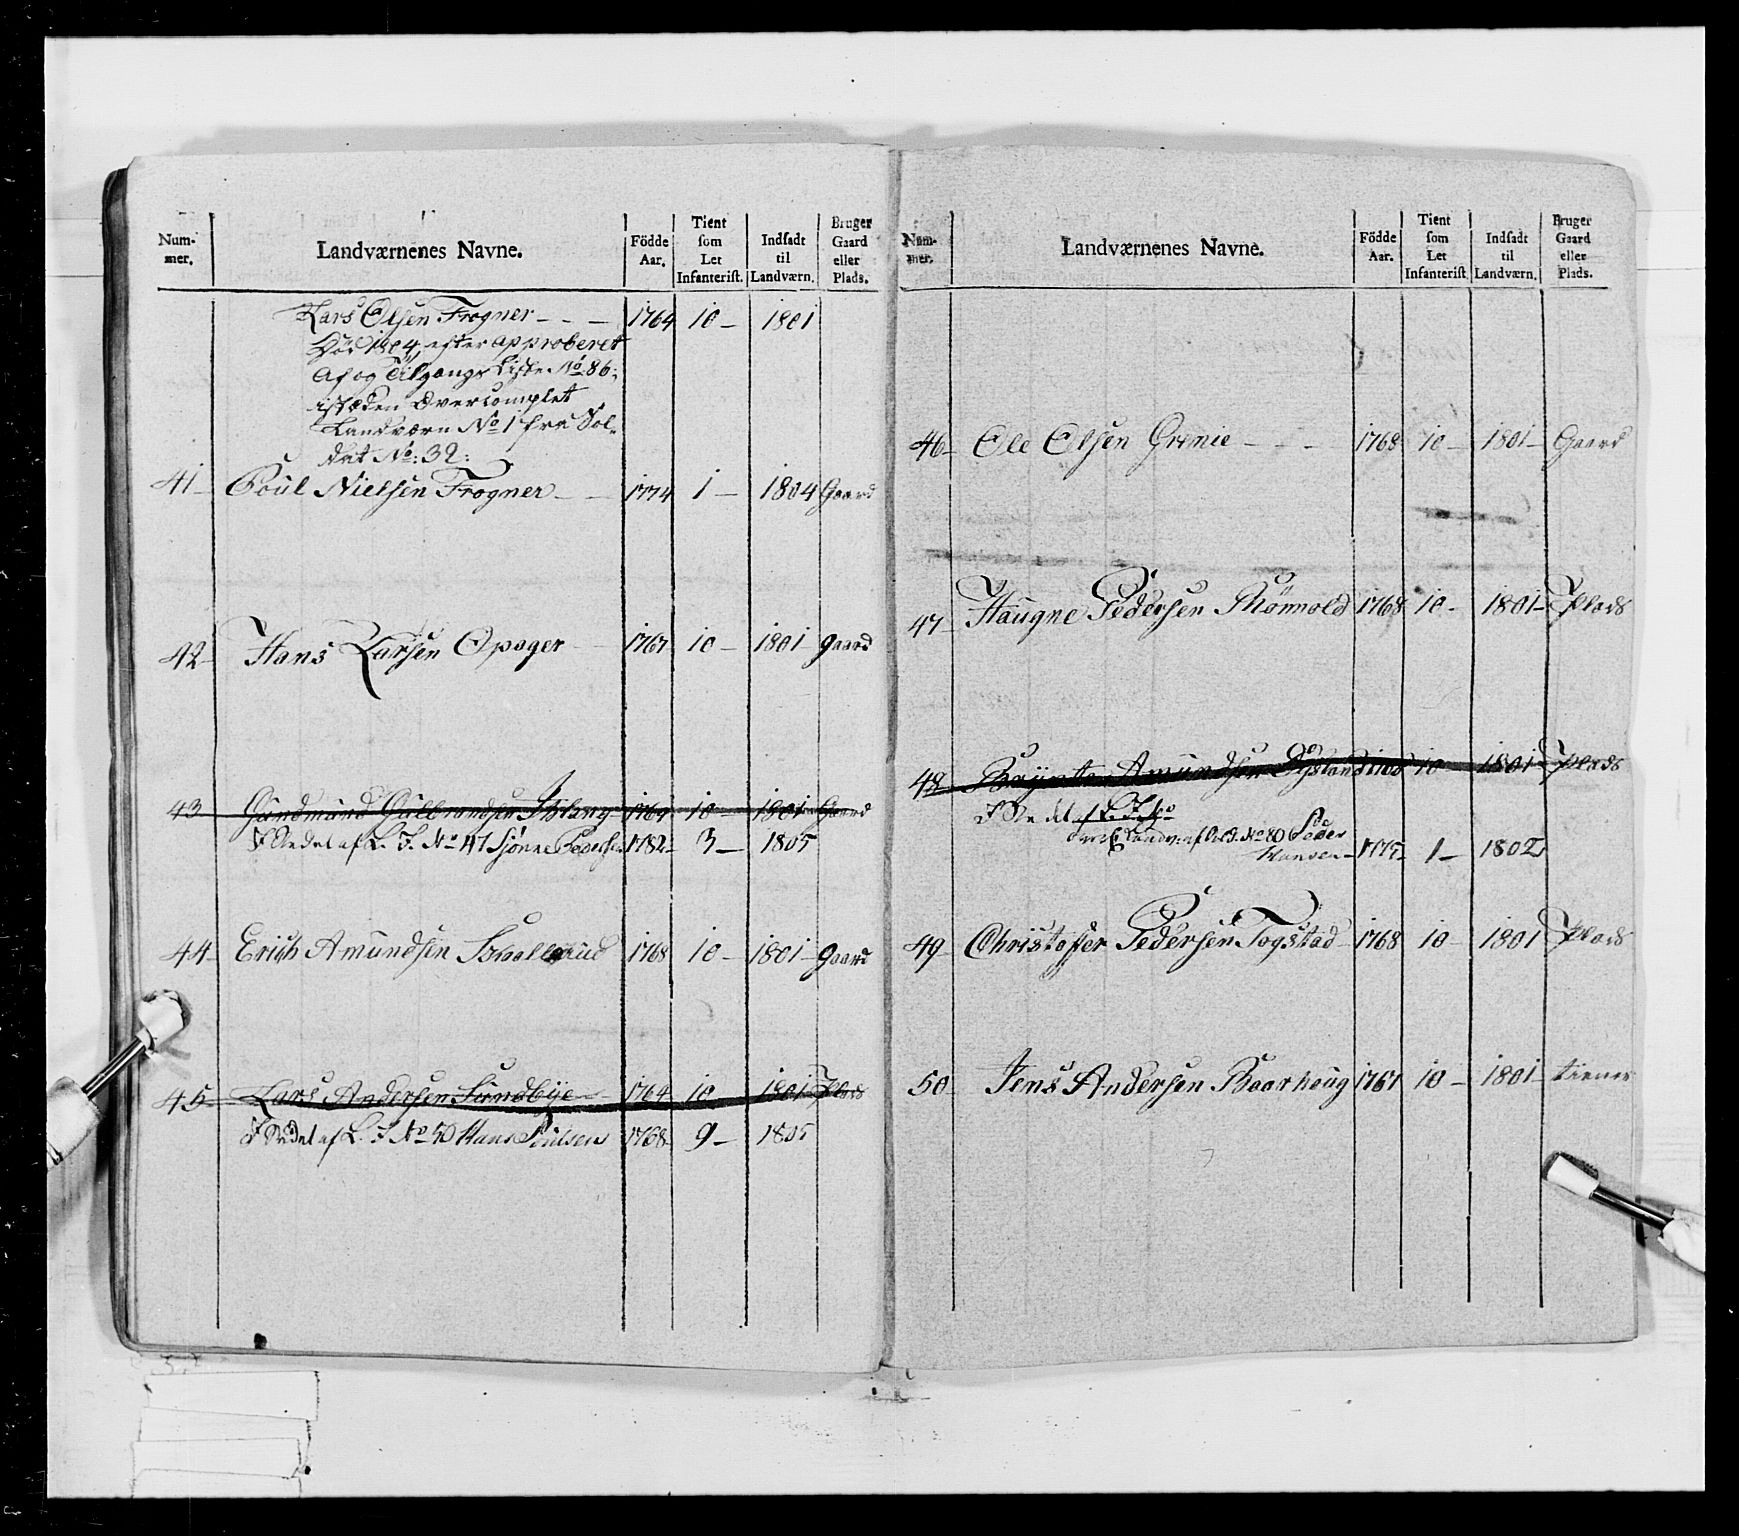 Num-
mer.
Landværnenes Navne.
Födde
Aar.
Tient
som
Let
Infanterist.
Indsadt
til
Landværn.
Bruger
Gaard
eller
Plads.
Lars Olsen Frogner - - - 1764 10 - 1801
Död 1804, efter approberet
Af og Tilgangs Liste No 86:
isteden Overcomplet
Landværn No 1 fra Sol-
dat No: 32:
41 - Poul Nielsen Frogner - - 1774 1 - 1804 Gaard
42 - Hans Larsen Opager - 1767 10 - 1801 Gaard
43 Gundmund Gulbrandsen 1764 10 - 1801 Gaard
I Stedet af L. I. No 47 Sjönne Pedersen 1782 - 3 - 1805
44 - Erich Amundsen 1768 10 - 1801 - Gaard
45 - Lars Andersen Sundbÿe - 1764 10 1801 Plads
I Stedet af L. I No 50 Hans Poulsen 1768 - 9 - 1805
Num-
mer.
Landværnenes Navne.
Födde
Aar.
Tient
som
Let
Infanterist.
Indsadt
til
Landværn.
Bruger
Gaard
eller
Plads.
46 - Ole Olsen Grinie - - 1768 10 - 1801 - Gaard
47 - Haugne Pedersen 1768 10 - 1801 - Plads
48 - Amundsen 10 - 1801 - Plads
I Stedet af
Landv: af No 80 Peder
Hansen - 1775 - 1 - 1802
49 - Christopher Pedersen Togstad - 1768 10 - 1801 Plads
50 - Jens Andersen Baarhoug 1767 10 - 1801 - tiener